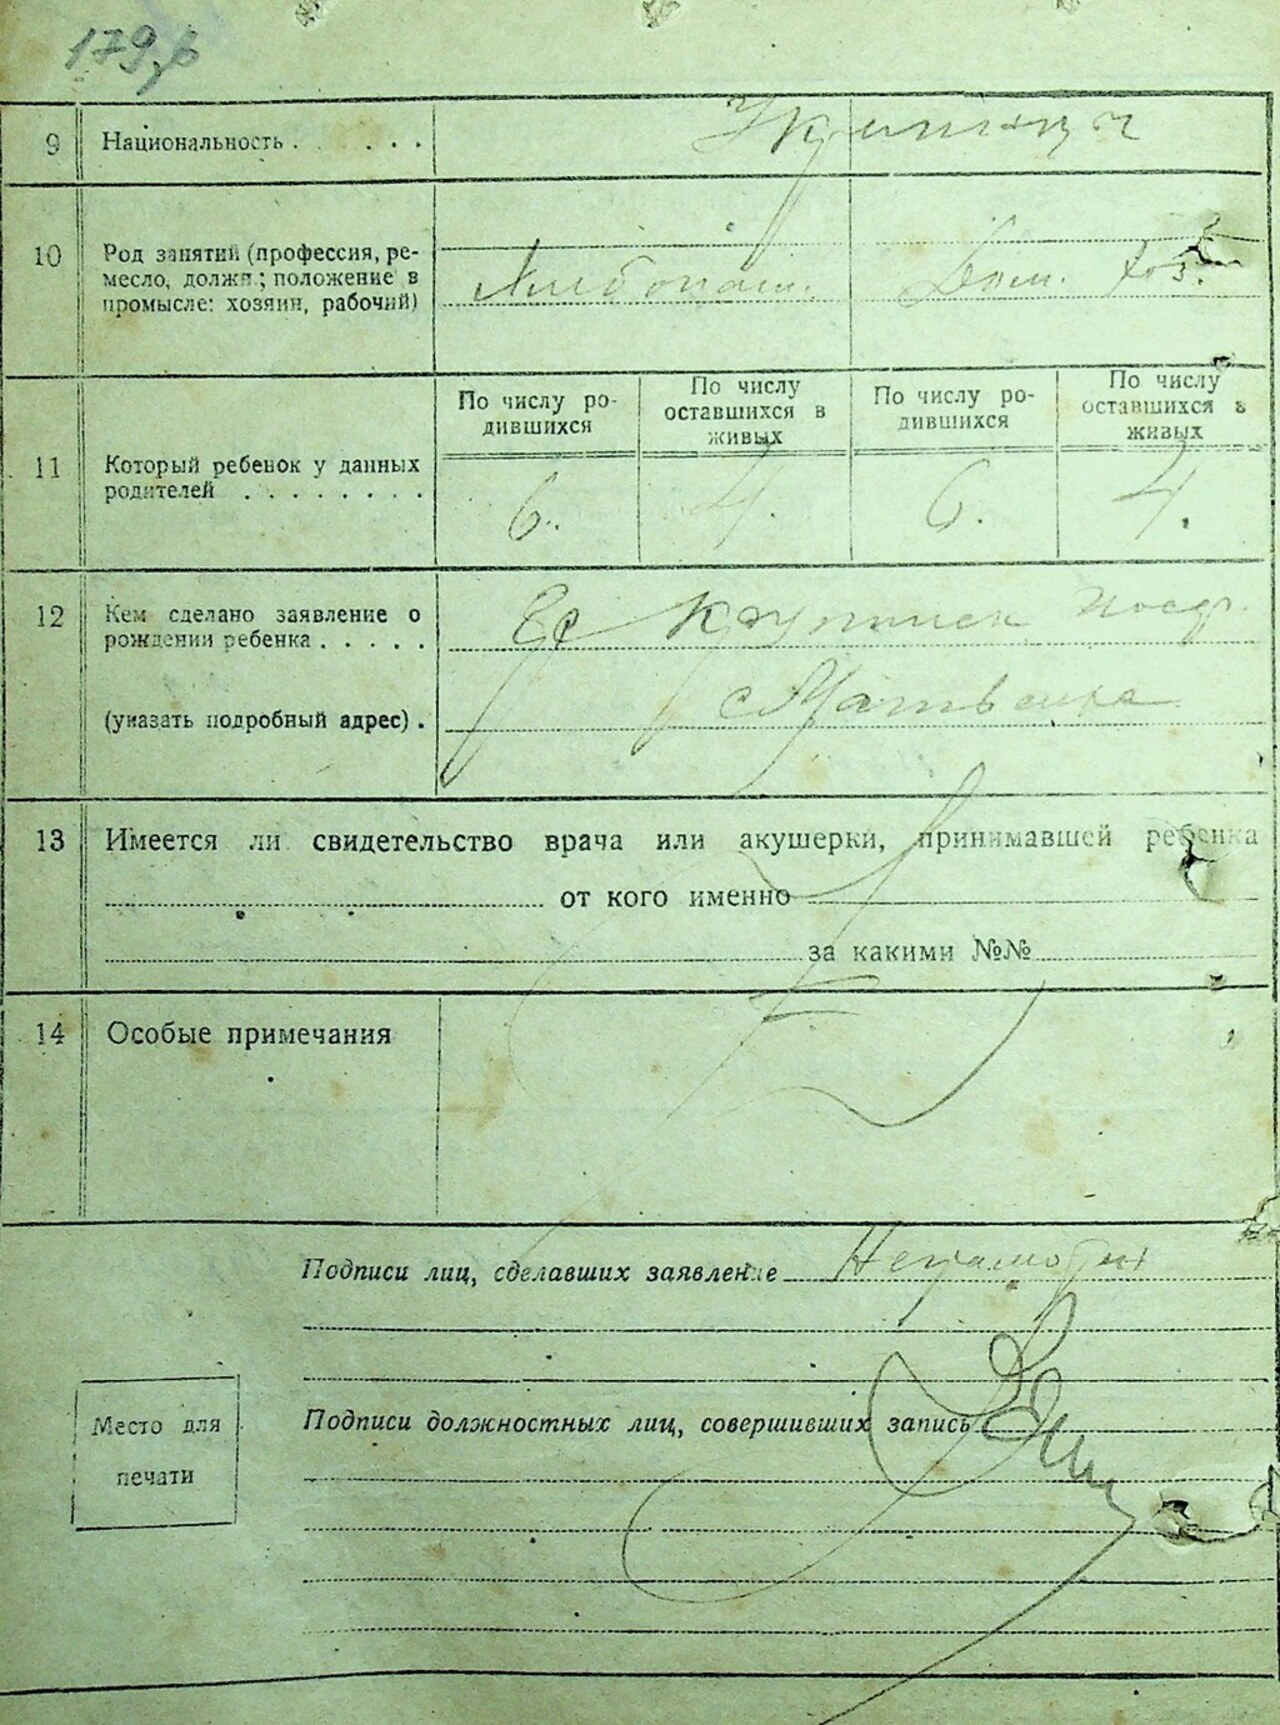 179
9 Национальность . . . . . Украинцы
10 Род занятий (профессия, ре-
месло, должн.; положение в
промысле: хозяин, рабочий)
Хлебопаш. Дом. хоз.
По числу ро-
дившихся
По числу
оставшихся в
живых
По числу ро-
дившихся
По числу
оставшихся в
живых
11 Который ребенок у данных
родителей . . . . . . . .
6. 4. 6. 4.
12 Кем сделано заявление о
рождении ребенка . . . . .
(указать подробный адрес) .
с Матвеевка
13 Имеется ли свидетельство врача или акушерки, принимавшей ребенка
от кого именно
за какими №№
14 Особые примечания
Подписи лиц, сделавших заявление Неграмотен
Подписи должностных лиц, совершивших запись
Место для
печати